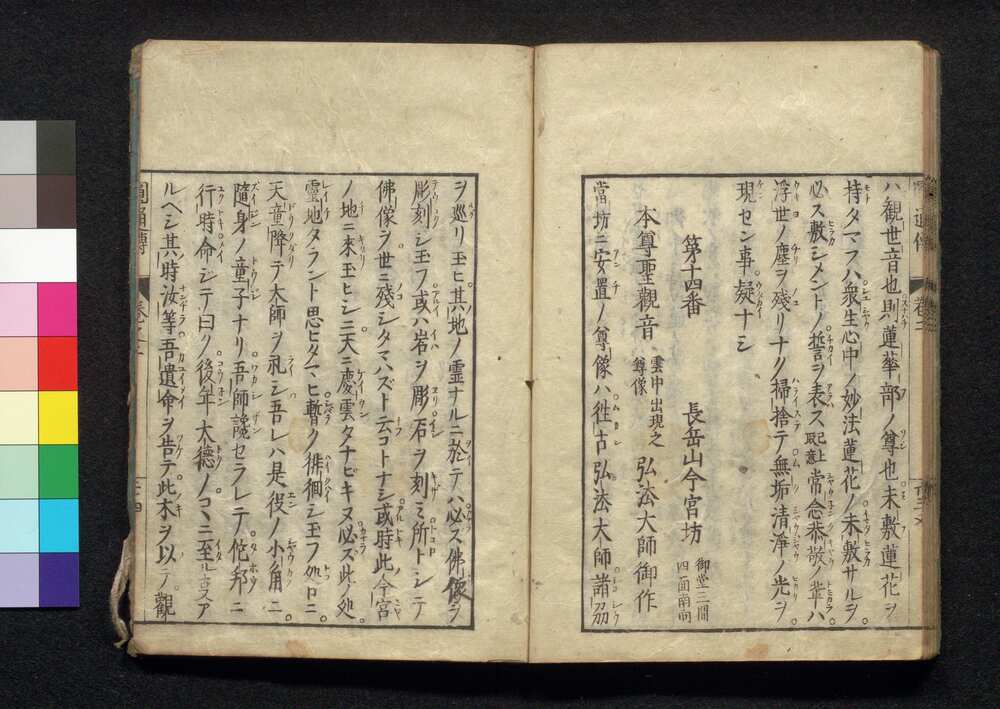 ハ観世音也則蓮華部ノ尊也未敷蓮花ヲ
持タマフハ衆生心中ノ妙法蓮花ノ未敷サルヲ
必ス敷シメントノ誓ヲ表ス 已上取意 常念恭敬ノ輩ハ
浮世ノ塵ヲ残リナク掃捨テ無垢清淨ノ光ヲ
現セン事疑ナシ
第十四番 長岳山今宮坊 御堂三間四面南向
本尊聖觀音 雲中出現之尊像 弘法大師御作
當坊ニ安置ノ尊像ハ徃古弘法大師諸刕
ヲ巡リ玉ヒ其地ノ霊ナルニ於テハ必ス佛像ヲ
彫刻シ玉フ或ハ岩ヲ彫石ヲ刻ミ所トシテ
佛像ヲ世ニ残シタマハズト云コトナシ或時此今宮
ノ地ニ來玉ヒシニ天ニ慶雲タナビキヌ必ズ此ノ処
霊地タラント思ヒタマヒ暫ク徘徊シ玉フ処ロニ
天童降テ大師ヲ礼シ吾レハ是役ノ小角ニ
隨身ノ童子ナリ吾師讒セラレテ佗邦ニ
行時命シテ曰ク後年大德ノコヽニ至ルコアア
ルヘシ其時汝等吾遺命ヲ告テ此木ヲ以テ觀
圓通傳 巻之二